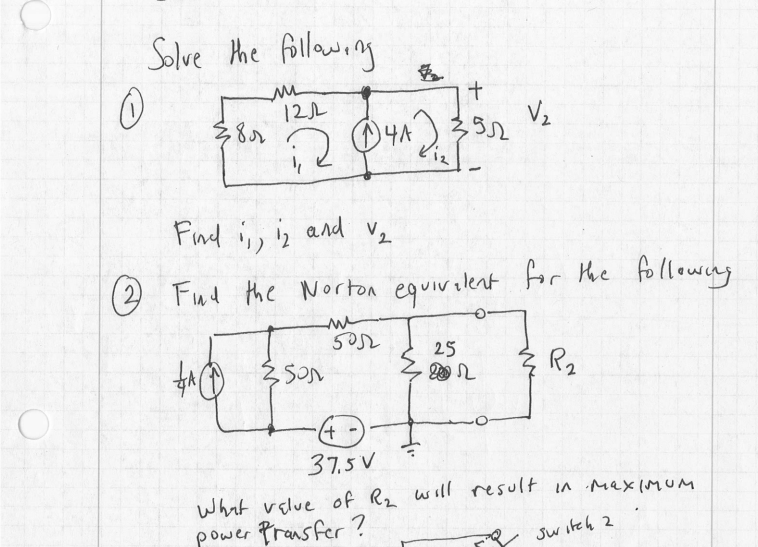 Solve the following
①
12Ω
8Ω
i₁
4A
i₂
+
5Ω
-
V₂
Find i₁, i₂ and v₂
② Find the Norton equivalent for the following
50Ω
¼A
50Ω
25
Ω
R₂
+ -
37.5 V
What value of R₂ will result in maximum
power transfer?
switch 2